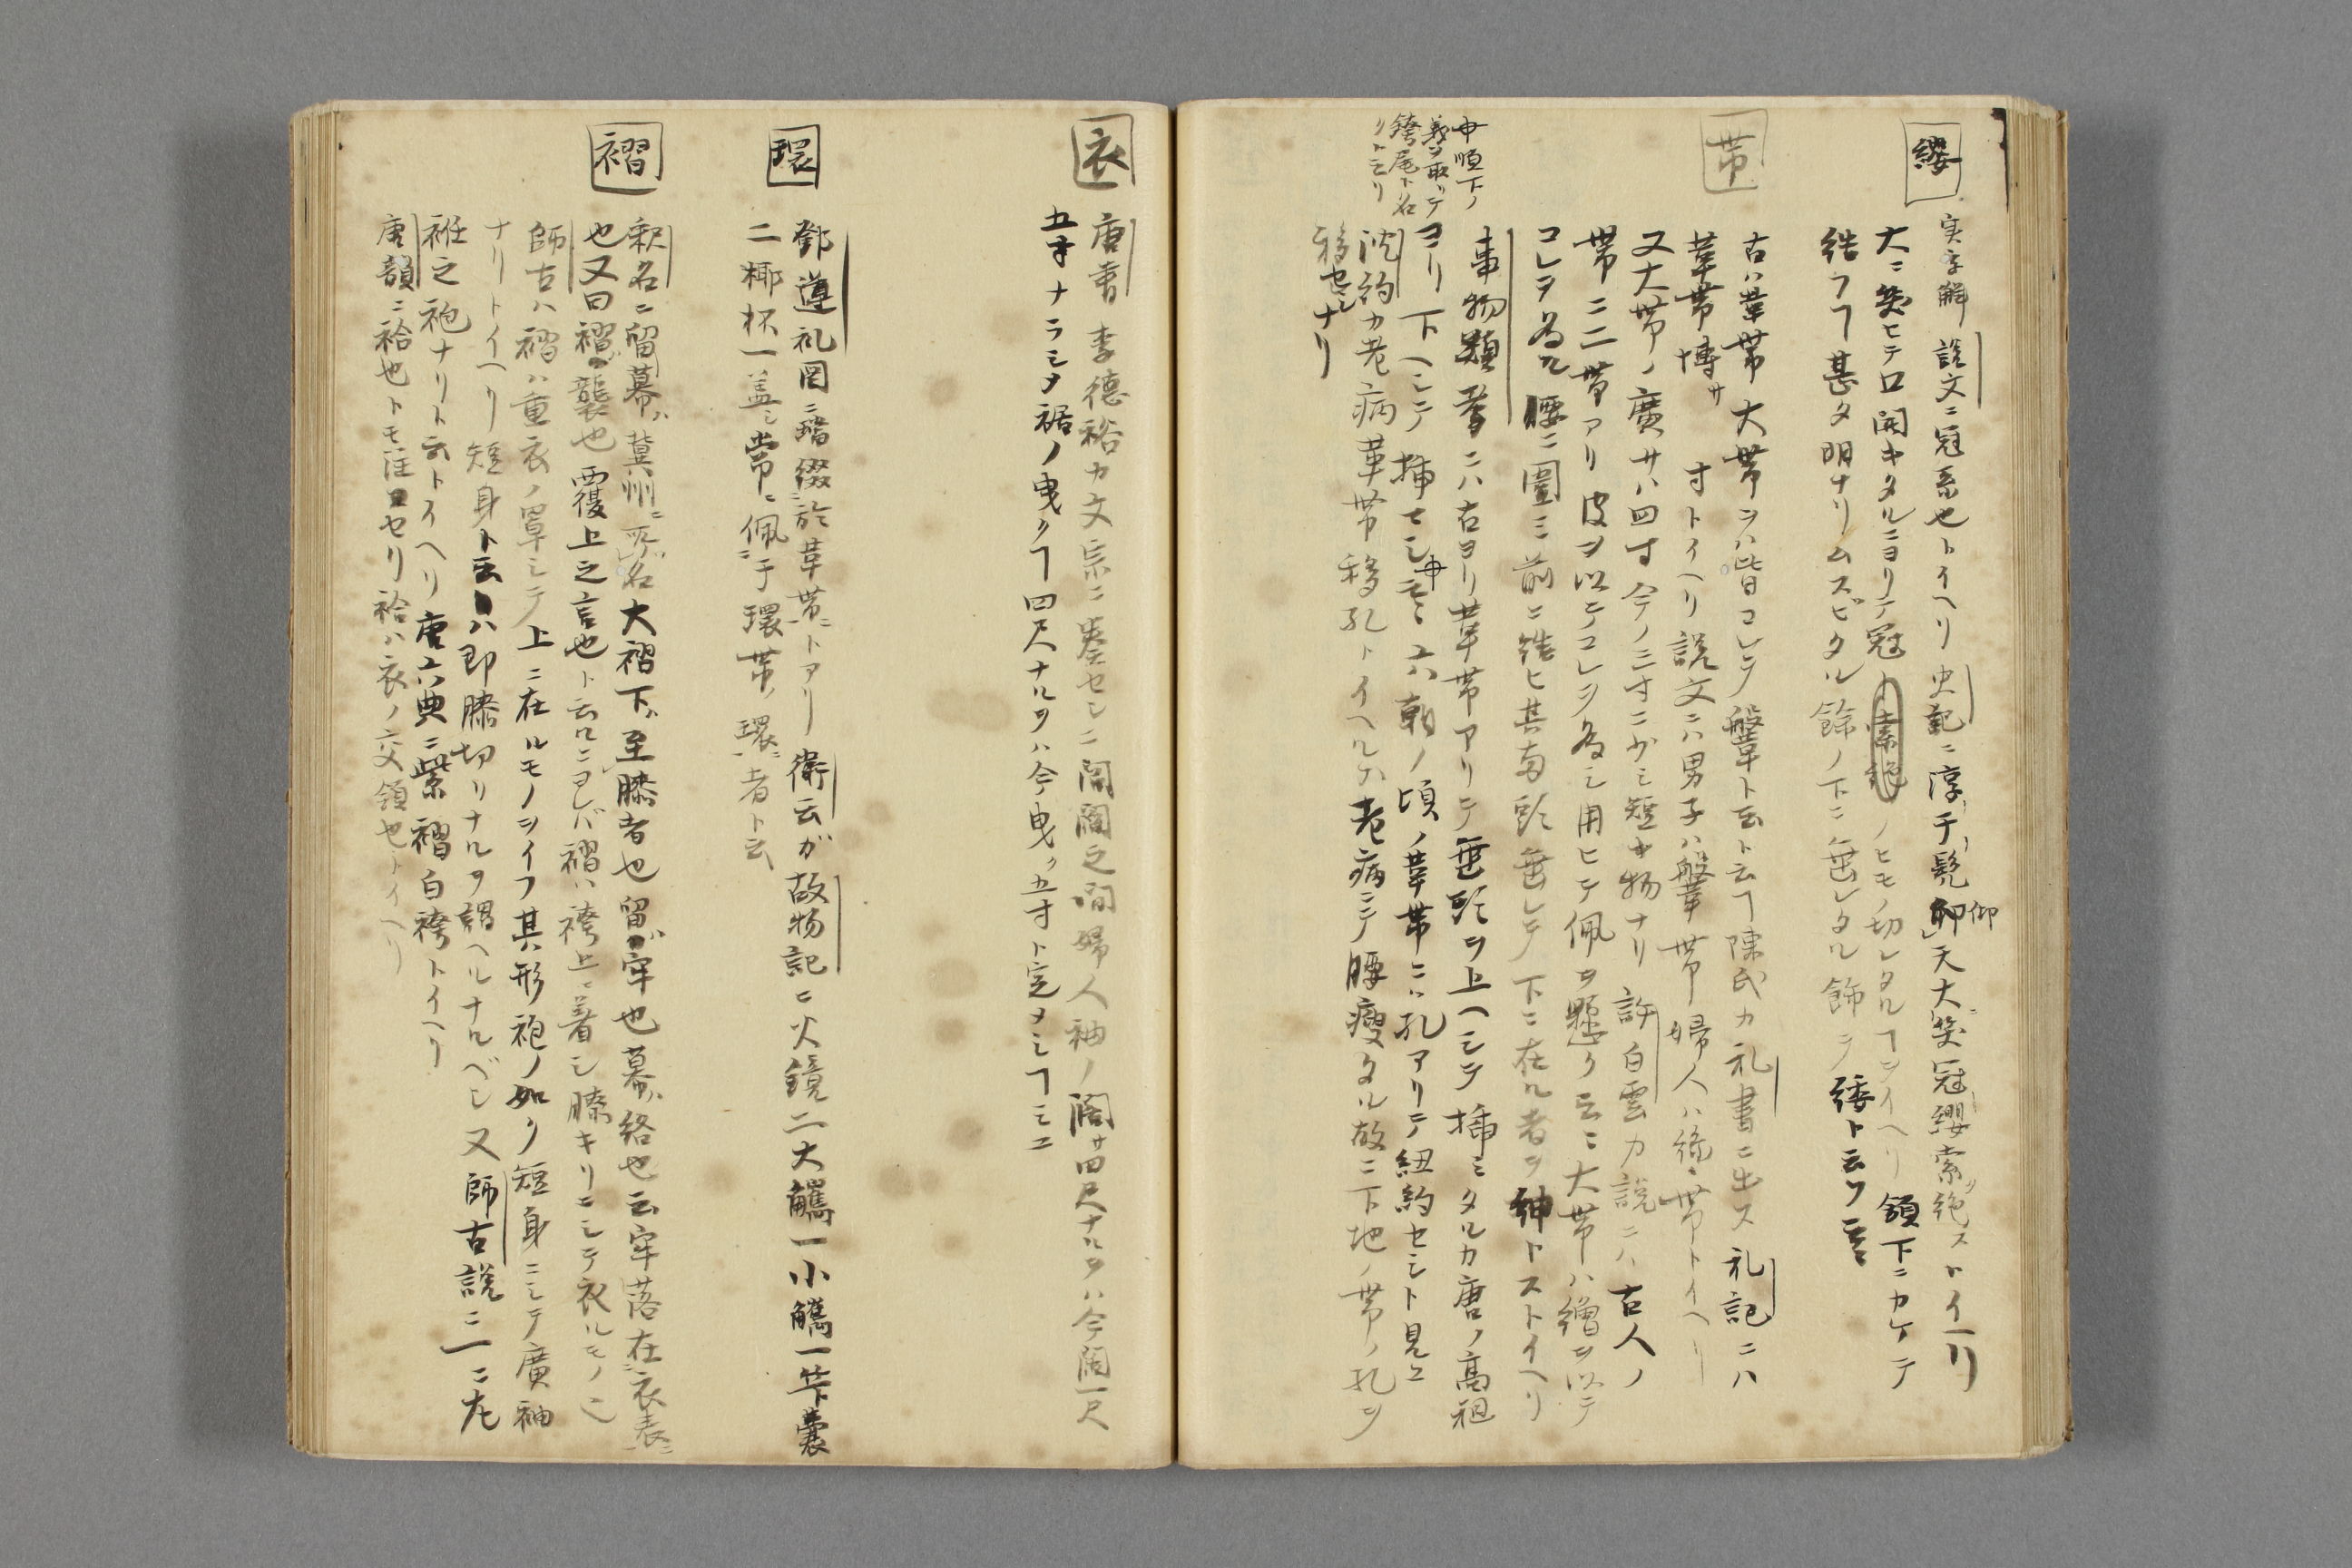 纓
実字解 説文ニ冠系也トイヘリ 史記ニ淳于髠仰天大笑冠纓索絶ストイヘリ
大ニ笑ヒテ口開キタルニヨリテ冠ノヒモノ切レタルヿヲイヘリ 頷下ニカケテ
結フヿ甚タ明ナリムスビタル餘ノ下ニ垂レタル飾ヲ緌ト云フ
帯
古ハ革帯大帯ヲハ皆コレヲ鞶ト云ト云ヿ陳氏カ礼書ニ出ス 礼記ニハ
革帯博サ 寸トイヘリ説文ニハ男子ハ鞶帯婦人ハ絲帯トイヘリ
又大帯ノ廣サハ四寸今ノ三寸ニ少ミ短キ物ナリ 許白雲カ説ニハ古人ノ
帯ニ二帯アリ皮ヲ以テコレヲ為シ用ヒテ佩ヲ懸ク 大帯ハ繒ヲ以テ
コレヲ為ル腰ニ圍ミ前ニ結ヒ其両頭垂レテ下ニ在ル者ヲ紳トストイヘリ
事物類 ニハ古ヨリ革帯アリテ垂頭ヲ上ヘシテ挿ミタルカ唐ノ高祖
ヨリ下ヘシテ挿セシ 六朝ノ頃ノ革帯ニハ孔アリテ紐約セシト見エ
申順下ノ
義ヲ取リテ
銙尾ト名
クト云リ
沈約カ老病革帯移孔トイヘルハ老病ニテ腰瘦タル故ニ下地ノ帯ノ孔ヲ
移セシナリ
衣
唐書李德裕カ文宗ニ奏セシニ閭閻之間婦人袖ノ闊サ四尺ナルヲハ今闊一尺
五寸ナラシメ裾ノ曳クヿ四尺ナルヲハ今曳ク五寸ト定メシヿミエ
環
鄧遵礼図ニ 綴於革帯トアリ 衛云が故物記ニ火鏡二大觿一小觿一笇囊
二椰杯一盖シ常ニ佩于環帯ノ環者ト云
褶
釈名ニ留幕冀州所名大褶下至膝者也留牢也幕絡也云牢落在衣表
也又曰褶襲也覆上之言也ト云ルニヨレバ褶ハ袴上ニ着シ膝キリニシテ衣ルモノ
師古ハ褶ハ重衣ノ 上ニ在ルモノヲイフ其形袍ノ如ク短身ニシテ廣袖
ナリトイヘリ短身ト云ハ即膝切リナルヲ謂ヘルナルベシ又師古説ニ一ニ左
袵之袍ナリト云トイヘリ唐六典ニ紫褶白袴トイヘリ
唐韻ニ袷也トモ注セリ袷ハ衣ノ交領也トイヘリ